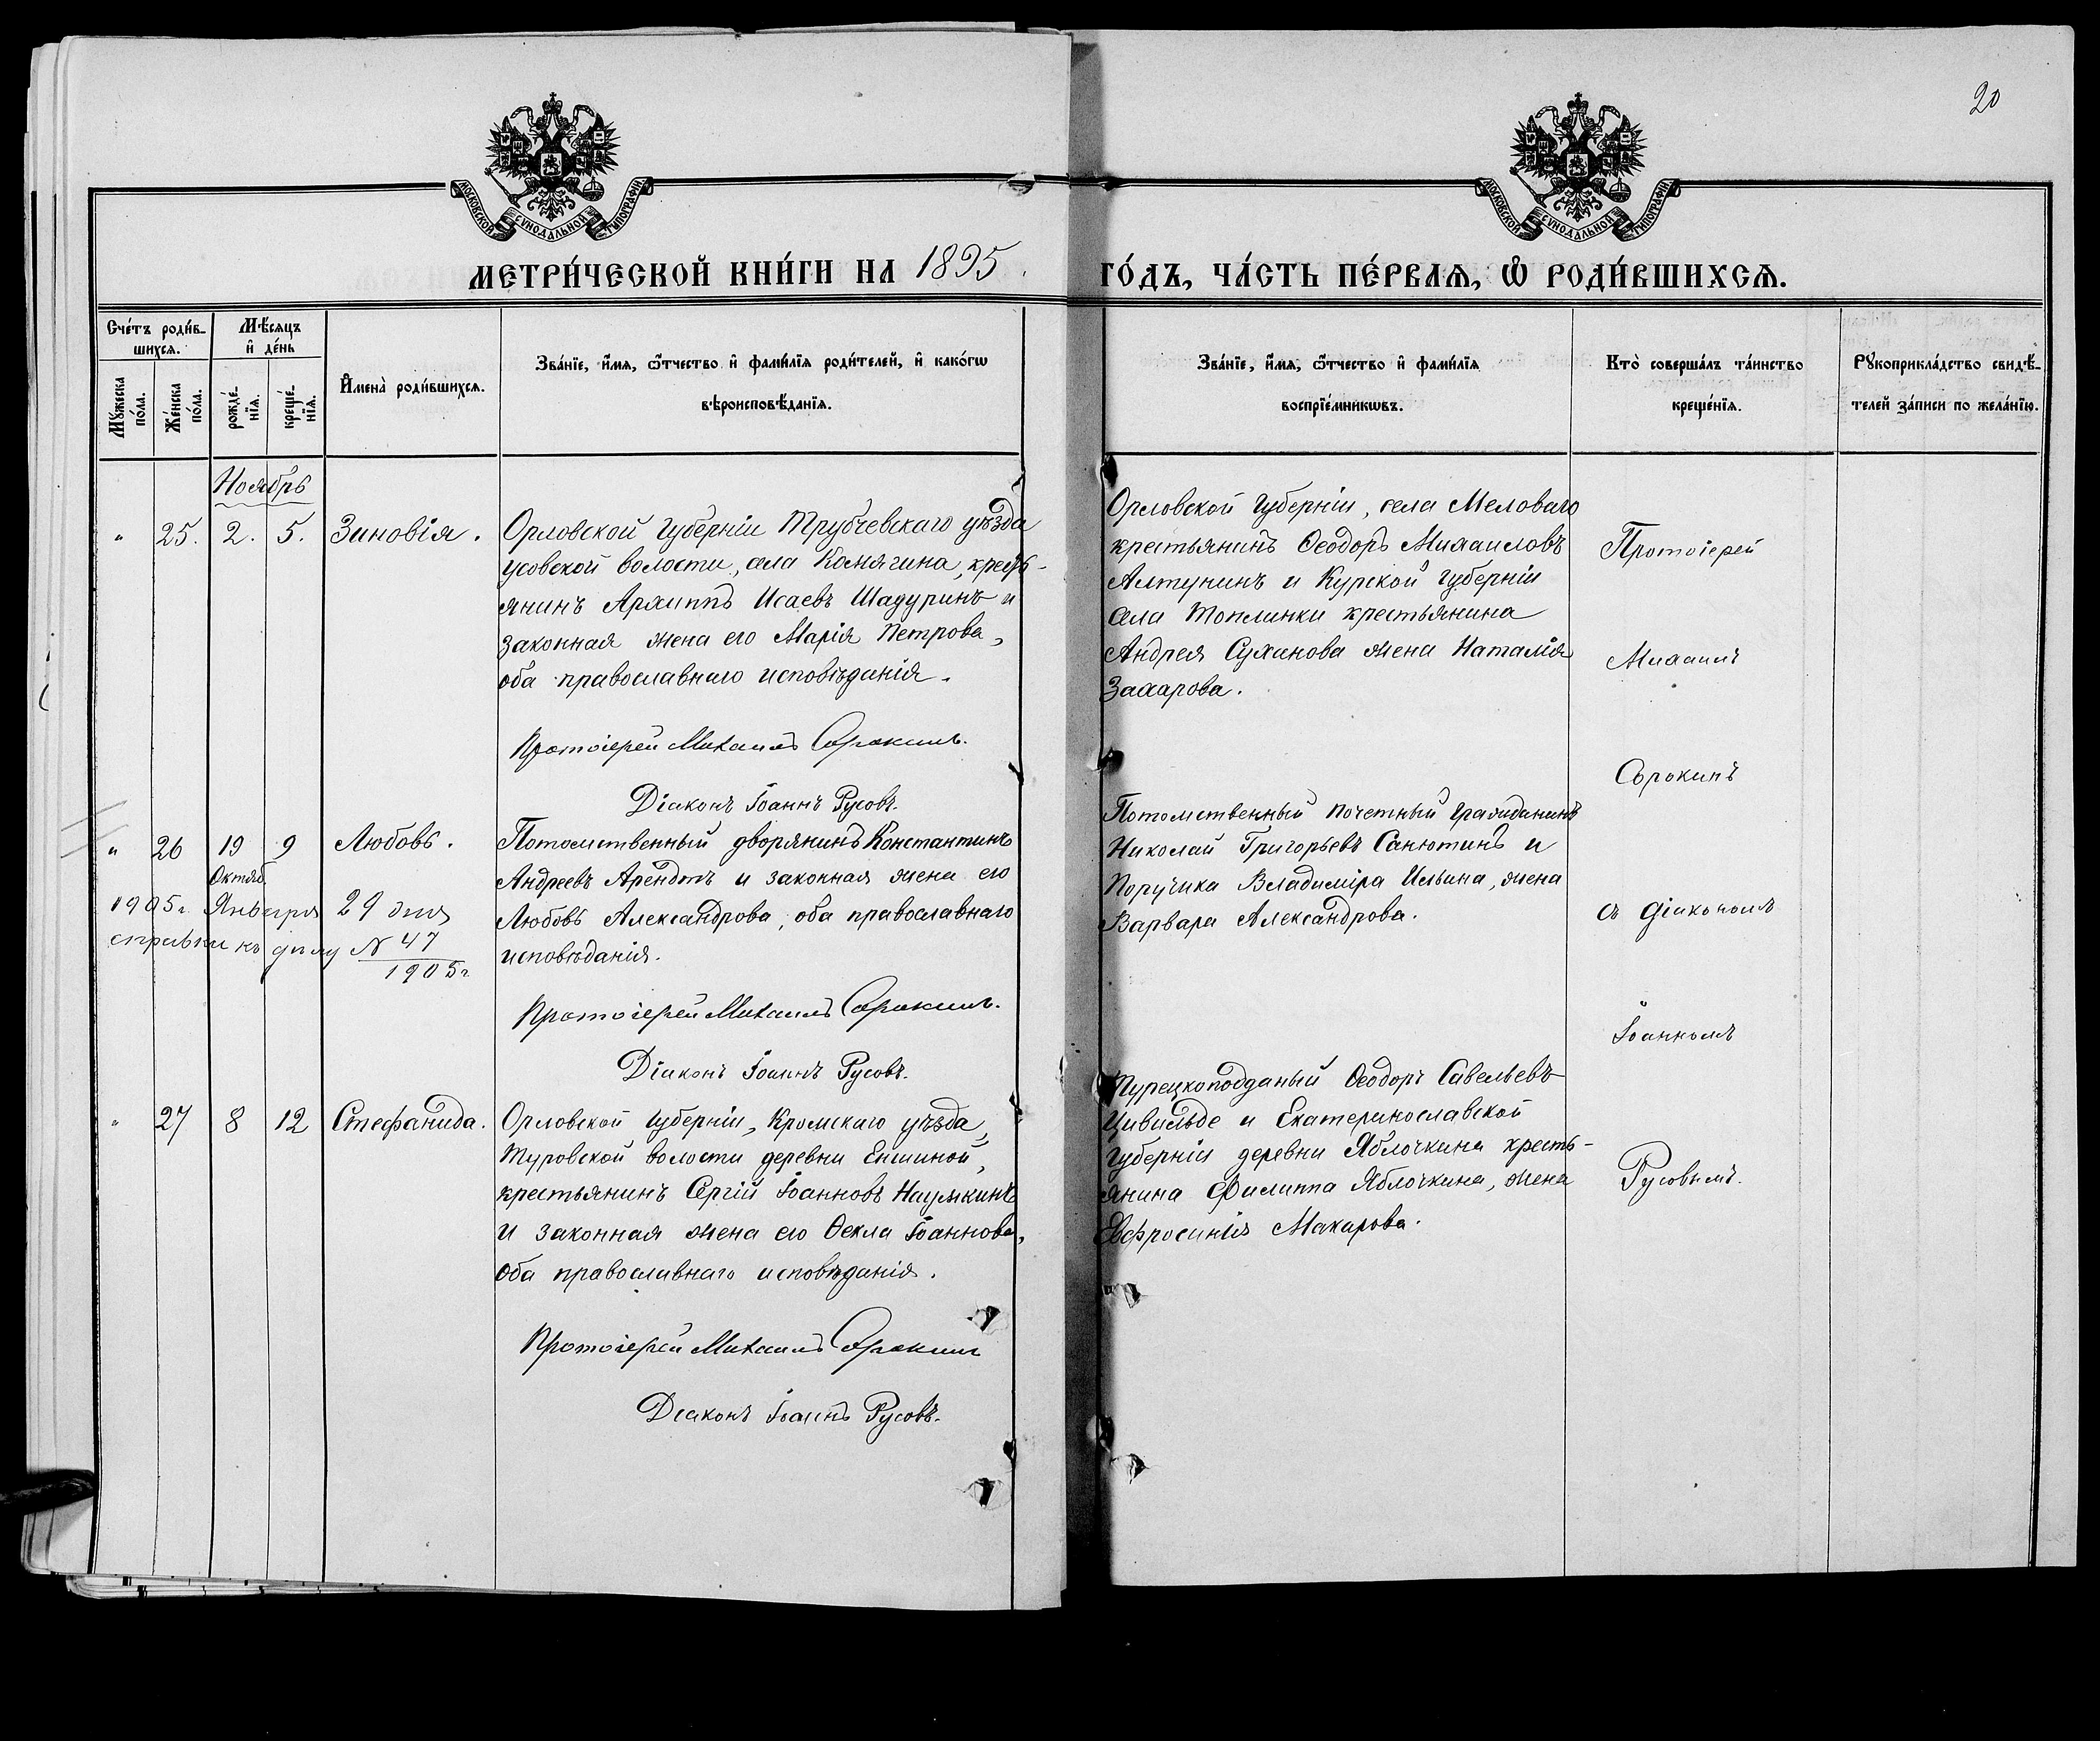 20
МОСКОВСКОЙ СѴНОДАЛЬНОЙ ТИПОГРАФІИ
МОСКОВСКОЙ СѴНОДАЛЬНОЙ ТИПОГРАФІИ
МЕТРИ́ЧЕСКОЙ КНИ́ГИ НА 1895.
ГО́ДЪ, ЧА́СТЬ ПЕ́РВАѦ, Ѡ҆ РОДИ́ВШИХСѦ.
Сче́тъ роди́в-
шихсѧ.
Мꙋ́жеска
по́ла.
Же́нска
по́ла.
Мѣ́сѧцъ
и҆ де́нь
рожде́-
нїѧ.
креще́-
нїѧ.
И҆мена̀ роди́вшихсѧ.
Зва́нїе, и҆́мѧ, ѻ҆́тчество и҆ фами́лїѧ роди́телей, и҆ како́гѡ
вѣроисповѣ́данїѧ.
Зва́нїе, и҆́мѧ, ѻ҆́тчество и҆ фами́лїѧ
воспрїе́мникѡвъ.
Кто̀ соверша́лъ та́инство
креще́нїѧ.
Рꙋкоприкла́дство свидѣ́-
телей за́писи по жела́нїю.
Ноябрь
" 25. 2. 5. Зиновія.
Орловской губерніи Трубчевскаго уѣзда
Усовской волости, села Комягина, кресть-
янинъ Архиппъ Исаевъ Шадуринъ и
законная жена его Марія Петрова,
оба православнаго исповѣданія.
Протоіерей Михаилъ Сорокинъ.
Діаконъ Іоаннъ Русовъ.
Орловской губерніи, села Меловаго
крестьянинъ Ѳеодоръ Михаиловъ
Алтунинъ и Курской губерніи
села Топлинки крестьянина
Андрея Суханова жена Наталія
Захарова.
" 26 19 9 Любовь.
Октяб.
1905г Января 29 дня
справки къ дѣлу N 47
1905г
Потомственный дворянинъ Константинъ
Андреевъ Арендтъ и законная жена его
Любовь Александрова, оба православнаго
исповѣданія.
Протоіерей Михаилъ Сорокинъ.
Діаконъ Іоаннъ Русовъ.
Потомственный почетный гражданинъ
Николай Григорьевъ Санютинъ и
Поручика Владиміра Ильина, жена
Варвара Александрова.
" 27 8 12 Стефанида.
Орловской губерніи, Кромскаго уѣзда,
Туровской волости деревни Еншиной,
крестьянинъ Сергій Іоанновъ Наумкинъ
и законная жена его Ѳекла Іоаннова,
оба православнаго исповѣданія.
Протоіерей Михаилъ Сорокинъ
Діаконъ Іоаннъ Русовъ.
Турецкоподданый Ѳеодоръ Савельевъ
Цивильде и Екатеринославской
губерніи деревни Яблочкина кресть-
янина Филиппа Яблочкина, жена
Евфросинія Макарова.
Протоіерей
Михаилъ
Сорокинъ
съ діакономъ
Іоанномъ
Русовымъ.